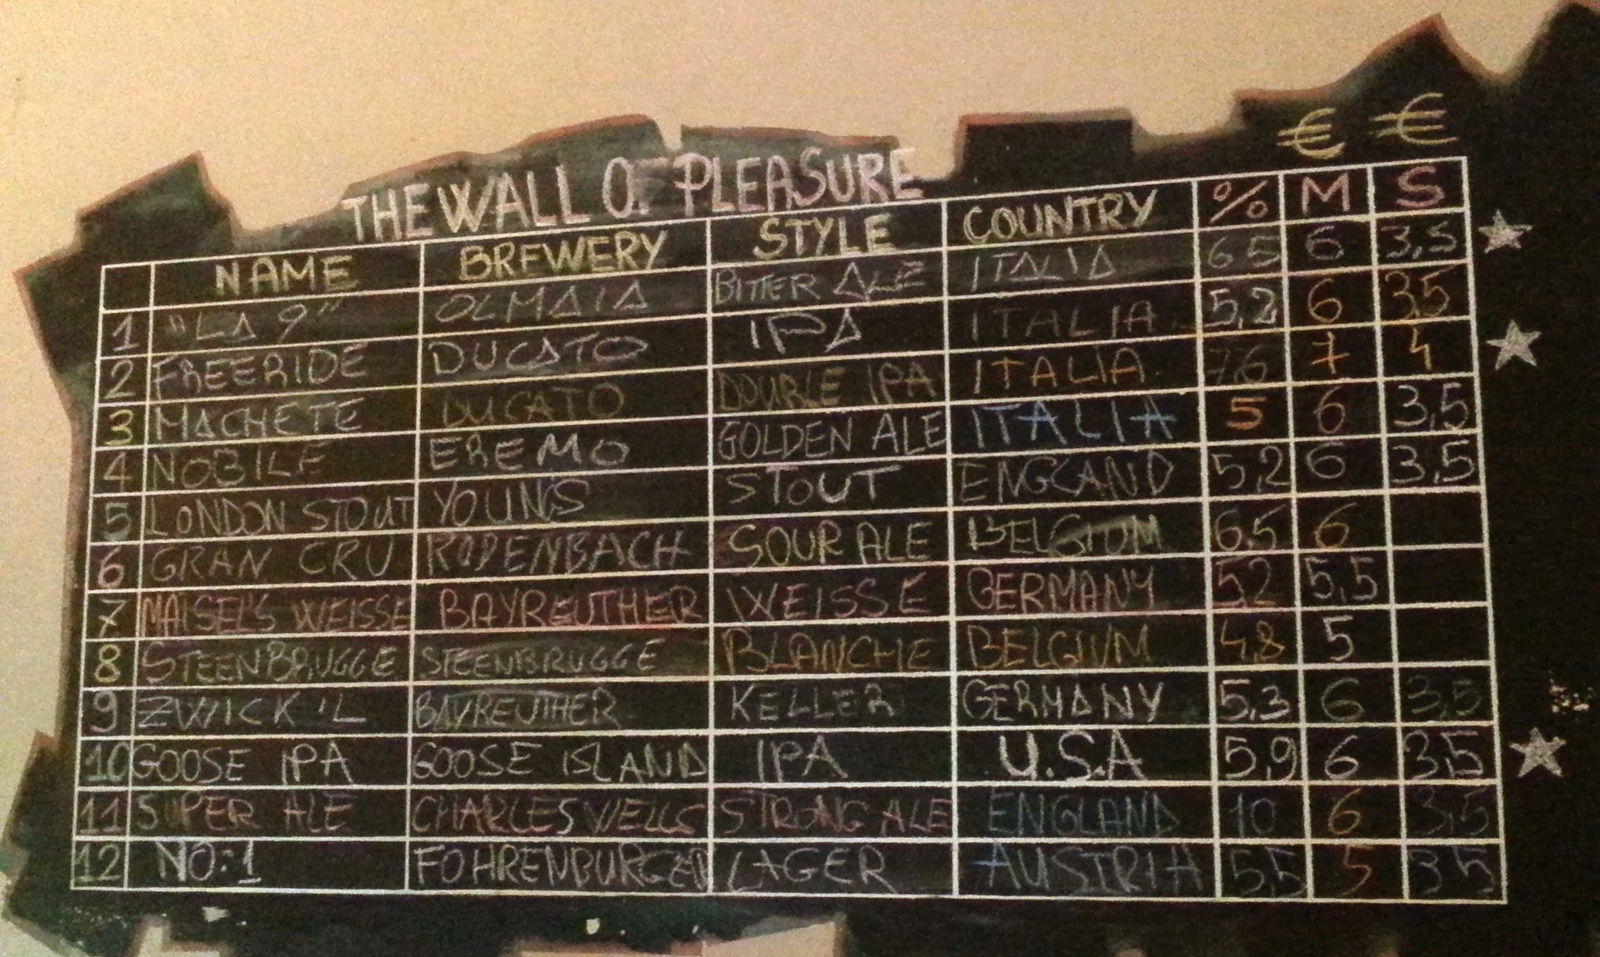 € €
THE WALL OF PLEASURE
NAME BREWERY STYLE COUNTRY % M S
1 "LA 9" OLMAIA BITTER ALE ITALIA 6,5 6 3,5
2 FREERIDE DUCATO IPA ITALIA 5,2 6 3,5
3 MACHETE DUCATO DOUBLE IPA ITALIA 7,6 7 4
4 NOBILE EREMO GOLDEN ALE ITALIA 5 6 3,5
5 LONDON STOUT YOUNS STOUT ENGLAND 5,2 6 3,5
6 GRAN CRU RODENBACH SOUR ALE BELGIUM 6,5 6
7 MAISEL'S WEISSE BAYREUTHER WEISSE GERMANY 5,2 5,5
8 STEENBRUGGE STEENBRUGGE BLANCHE BELGIUM 4,8 5
9 ZWICK'L BAYREUTHER KELLER GERMANY 5,3 6 3,5
10 GOOSE IPA GOOSE ISLAND IPA U.S.A 5,9 6 3,5
11 SUPER ALE CHARLES WELLS STRONG ALE ENGLAND 10 6 3,5
12 NO:1 FOHRENBURGER LAGER AUSTRIA 5,5 5 3,5